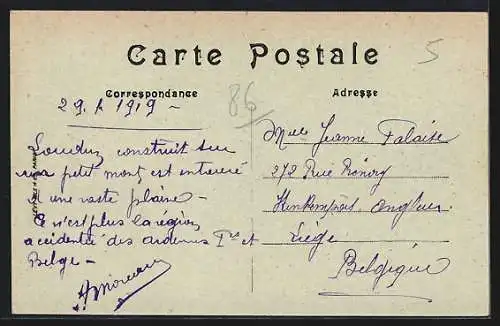 Carte Postale
5
Correspondance
86
Adresse
29. 1. 1919 -
Loudun, construit sur
un petit mont est entouré
d'une vaste plaine -
Ce n'est plus la région
accidentée des ardennes Fse et
Belge -
Moreau
Melle Jeanne Falaise
272 Rue Rénory
Kinkempois. Angleur
Liège
Belgique